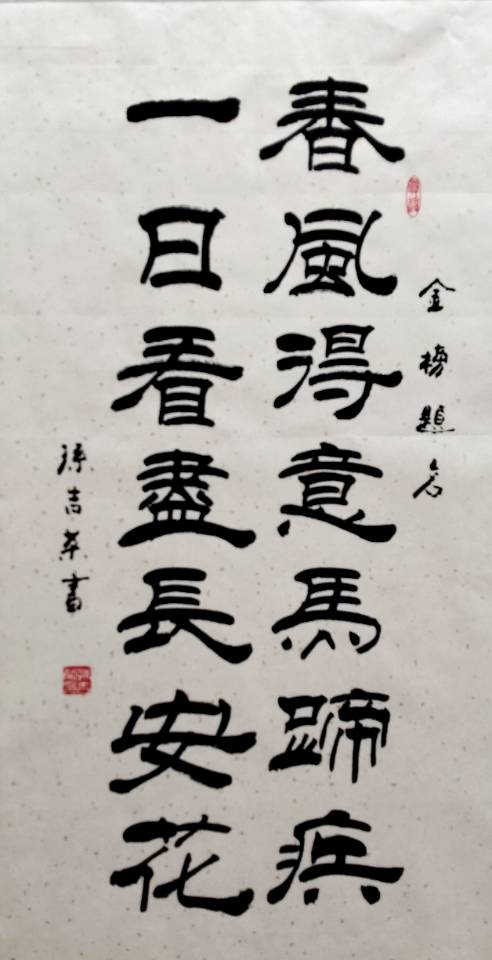 金榜題名
春風得意馬蹄疾
一日看盡長安花
孫吉英書